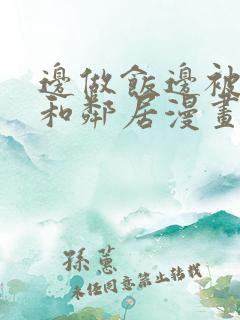 邊做飯邊被
和鄰居漫畫
孫蕙
未經同意禁止轉載